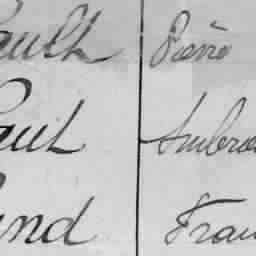 ault Pierre
aul Ambroi
and Fran